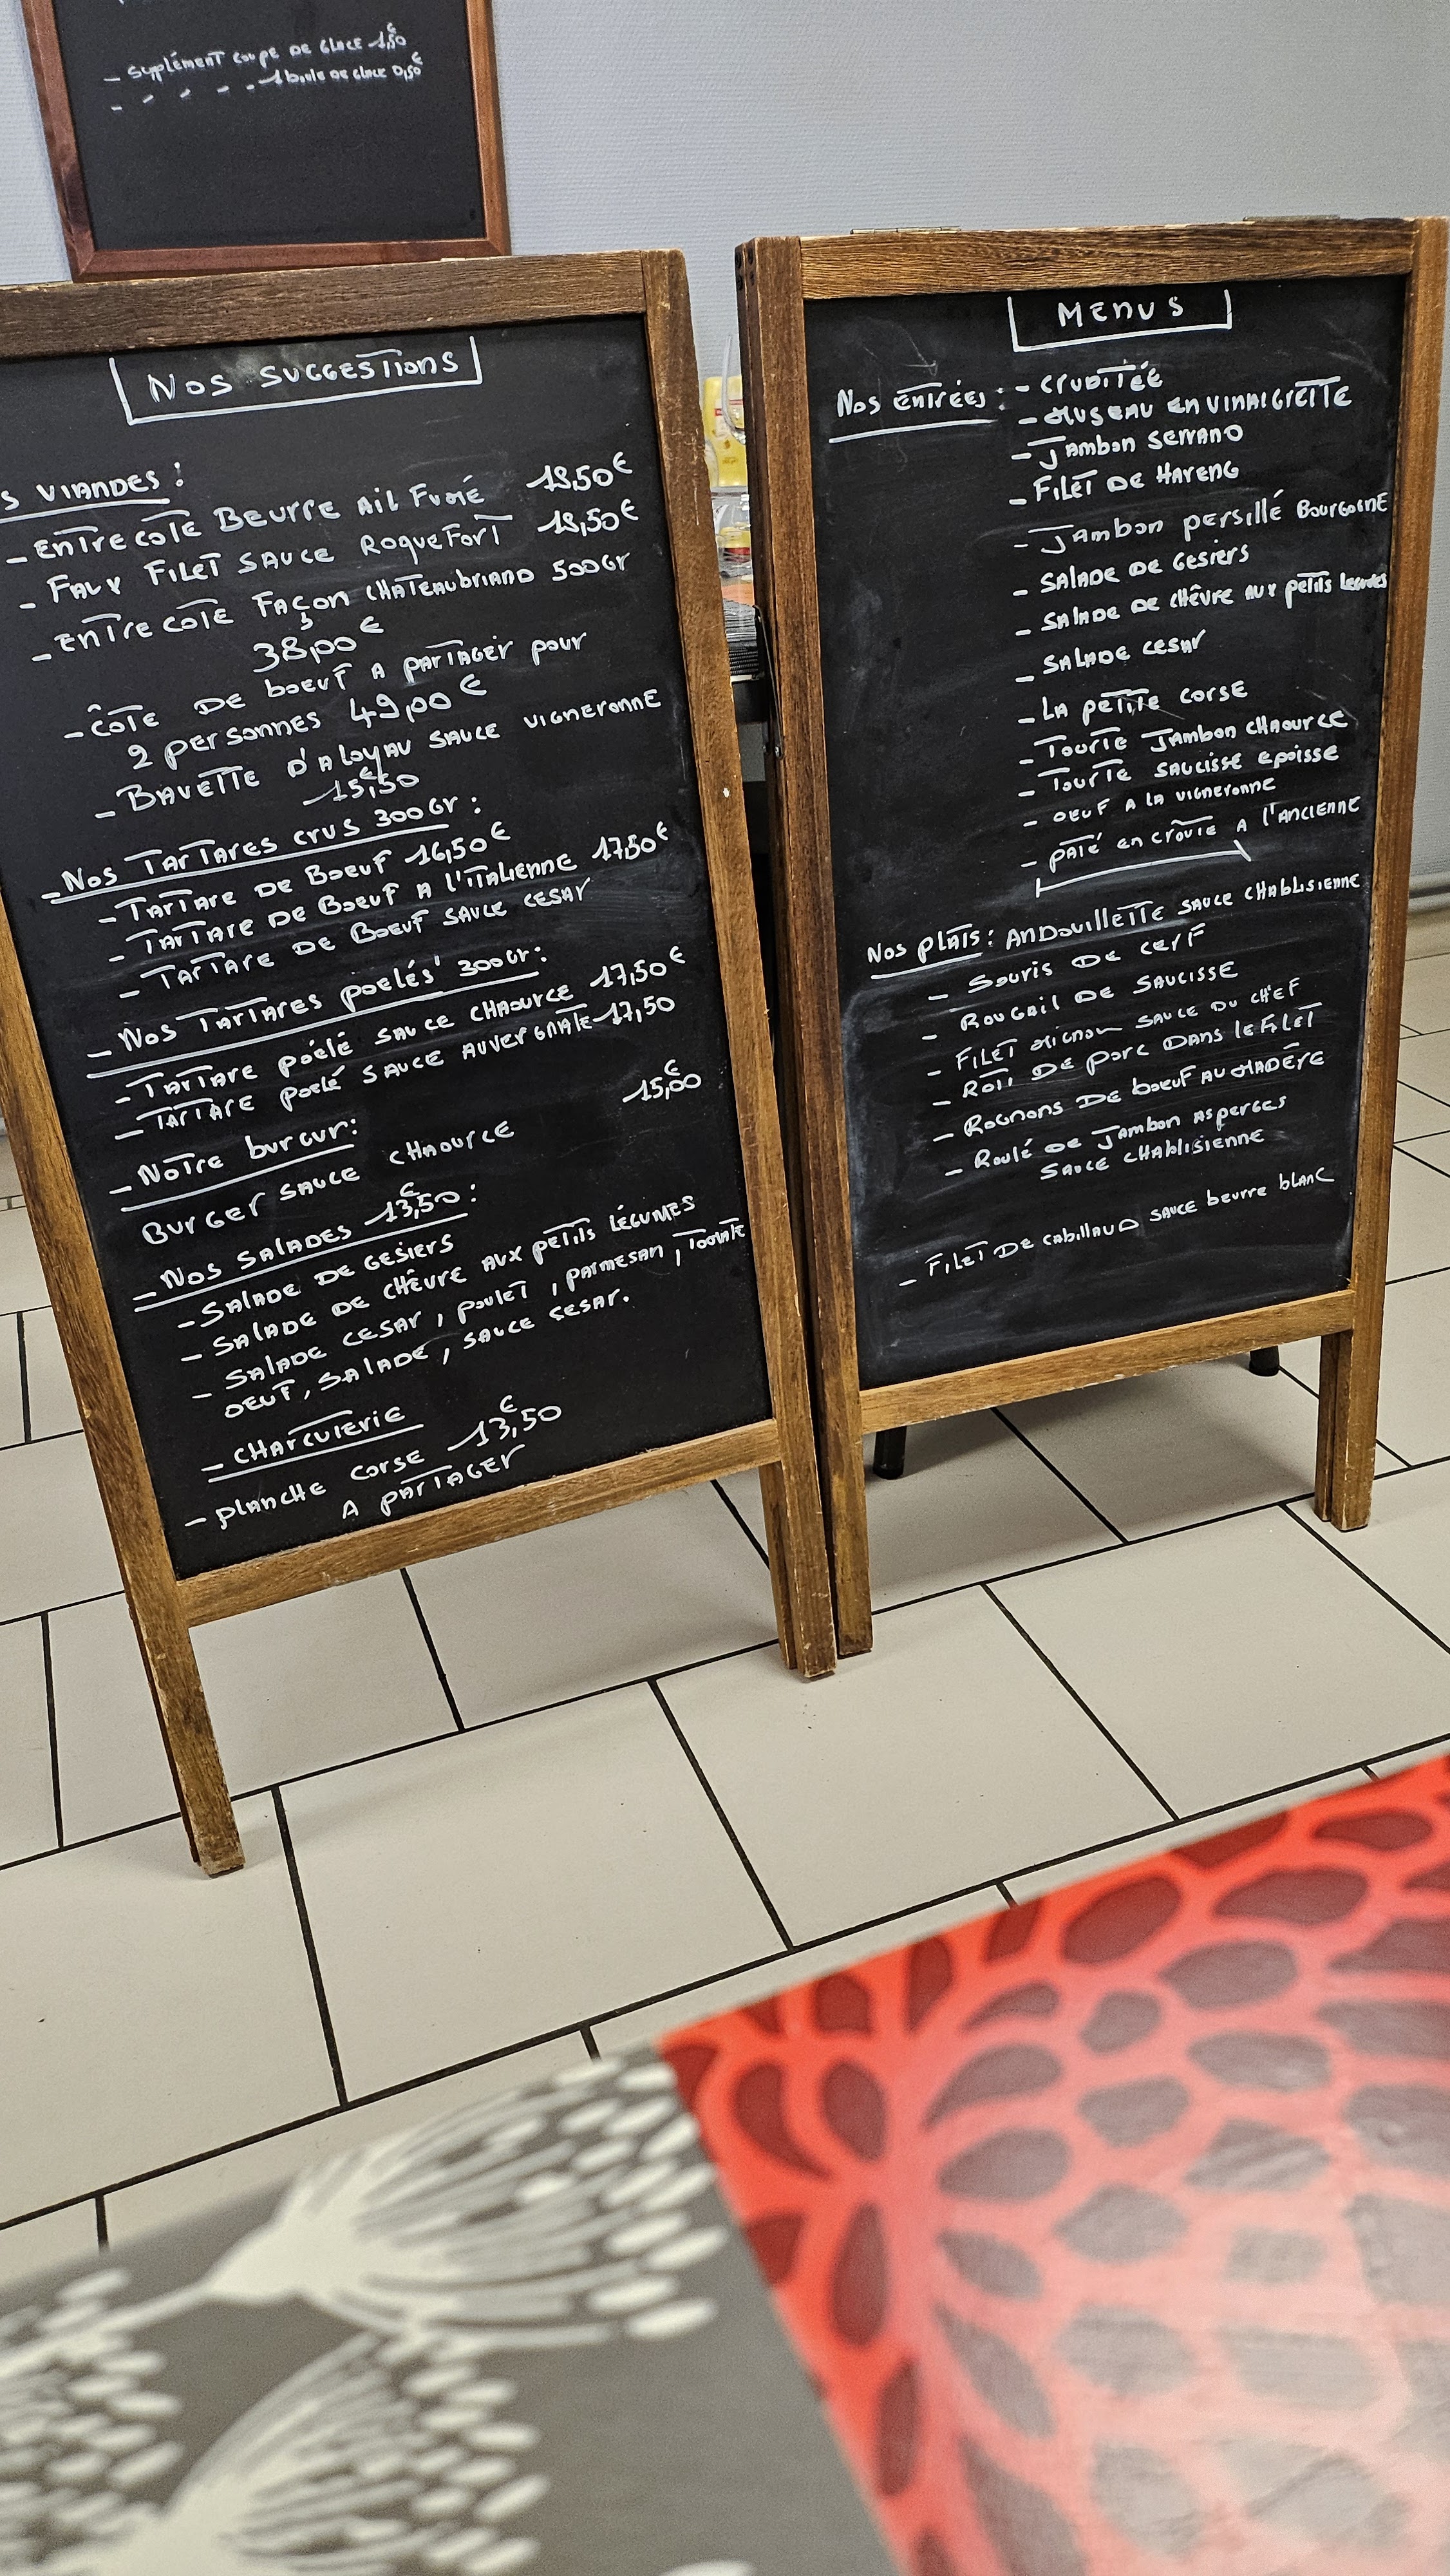 - Suplément coupe de glace 1,50€
- " " " " - 1 boule de glace 0,50€
Nos suggestions
s viandes :
- Entrecote Beurre Ail Fumé 18,50€
- Faux Filet sauce Roquefort 18,50€
- Entrecote Façon chateaubriand 500gr
38,00€
- côte de boeuf a partager pour
2 personnes 49,00€
- Bavette d'aloyau sauce vigneronne
15,50€
- Nos Tartares crus 300gr :
- Tartare de Boeuf 16,50€
- Tartare de Boeuf a l'italienne 17,50€
- Tartare de Boeuf sauce cesar
- Nos Tartares poelés 300gr :
- Tartare poêlé sauce chaource 17,50€
- Tartare poelé sauce auvergnate 17,50
- Notre burgur :
Burger sauce chaource 15,00€
- Nos salades 13,50€ :
- Salade de gesiers
- Salade de chêvre aux petits légumes
- Salade cesar, poulet, parmesan, tomate
oeuf, salade, sauce sesar.
- charcuterie
- planche corse 13,50€
a partager
Menus
Nos entrées : - cruditée
- Museau en vinaigrette
- Jambon serrano
- Filet de Hareng
- Jambon persillé Bourgogne
- Salade de gesiers
- Salade de chêvre aux petits legumes
- Salade cesar
- La petite corse
- Tourte Jambon chaource
- Tourte saucisse epoisse
- oeuf a la vigneronne
- paté en croute a l'ancienne
Nos plats : Andouillette sauce chablisienne
- Souris de cerf
- Rougail de saucisse
- Filet mignon sauce du chef
- Roti de porc dans le Filet
- Rognons de boeuf au madêre
- Roulé de Jambon asperges
sauce chablisienne
- Filet de cabillaud sauce beurre blanc